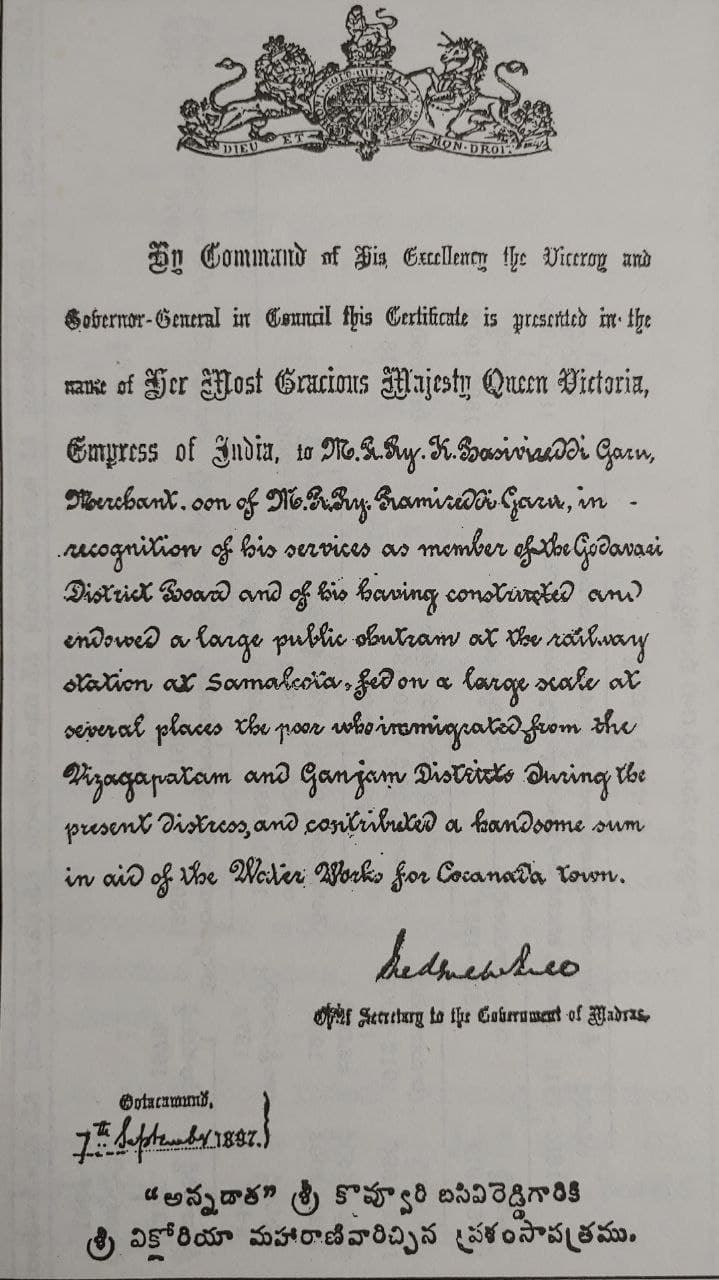 DIEU ET MON DROIT
By Command of His Excellency the Viceroy and
Governor-General in Council this Certificate is presented in the
name of Her Most Gracious Majesty Queen Victoria,
Empress of India, to M.R.Ry. K. Basivireddi Garu,
Merchant. son of M.R.Ry. Ramireddi Garu, in -
recognition of his services as member of the Godavari
District Board and of his having constructed and
endowed a large public chutram at the railway
station at Samalcota, fed on a large scale at
several places the poor who immigrated from the
Vizagapatam and Ganjam Districts during the
present distress, and contributed a handsome sum
in aid of the Water Works for Cocanada town.
Secretary to the Government of Madras.
Ootacamund,
7th September 1897.
"అన్నదాత" శ్రీ కొవ్వూరి బసివిరెడ్డిగారికి
శ్రీ విక్టోరియా మహారాణివారిచ్చిన ప్రశంసాపత్రము.